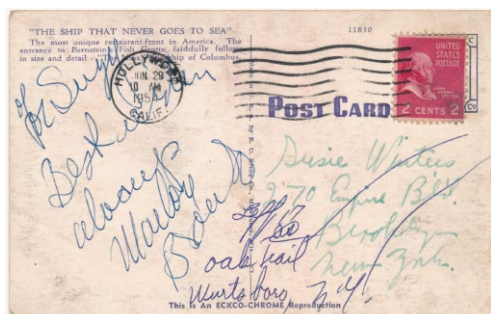 "THE SHIP THAT NEVER GOES TO SEA"
The most unique restaurant-front in America. The
entrance to Bernstein's Fish Grotto, faithfully follows
in size and detail ship of Columbus.
To Suzy
Best
always
Marlon
Brando
HOLLYWOOD
JUN 29
10 AM
1954
CALIF.
11830
UNITED
STATES
POSTAGE
2 CENTS 2
POST CARD
Co
Susie Winters
2770 Empire Blvd.
Brooklyn
New York.
oak trail
Wurtsboro, N.Y.
This Is An ECKCO-CHROME Reproduction